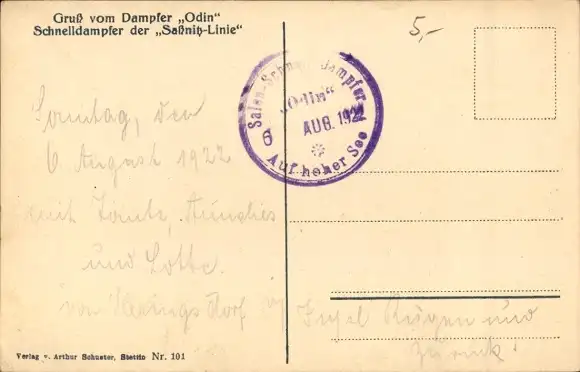 Gruß vom Dampfer „Odin“
Schnelldampfer der „Saßnitz-Linie“
5,-
Salon-Schnelldampfer
„Odin“
6 AUG. 1922
Auf hoher See
Sonntag, den
6 August 1922
mit Tante,
und Lotte.
von Heringsdorf Insel Rügen und
zurück.
Verlag v. Arthur Schuster, Stettin Nr. 101